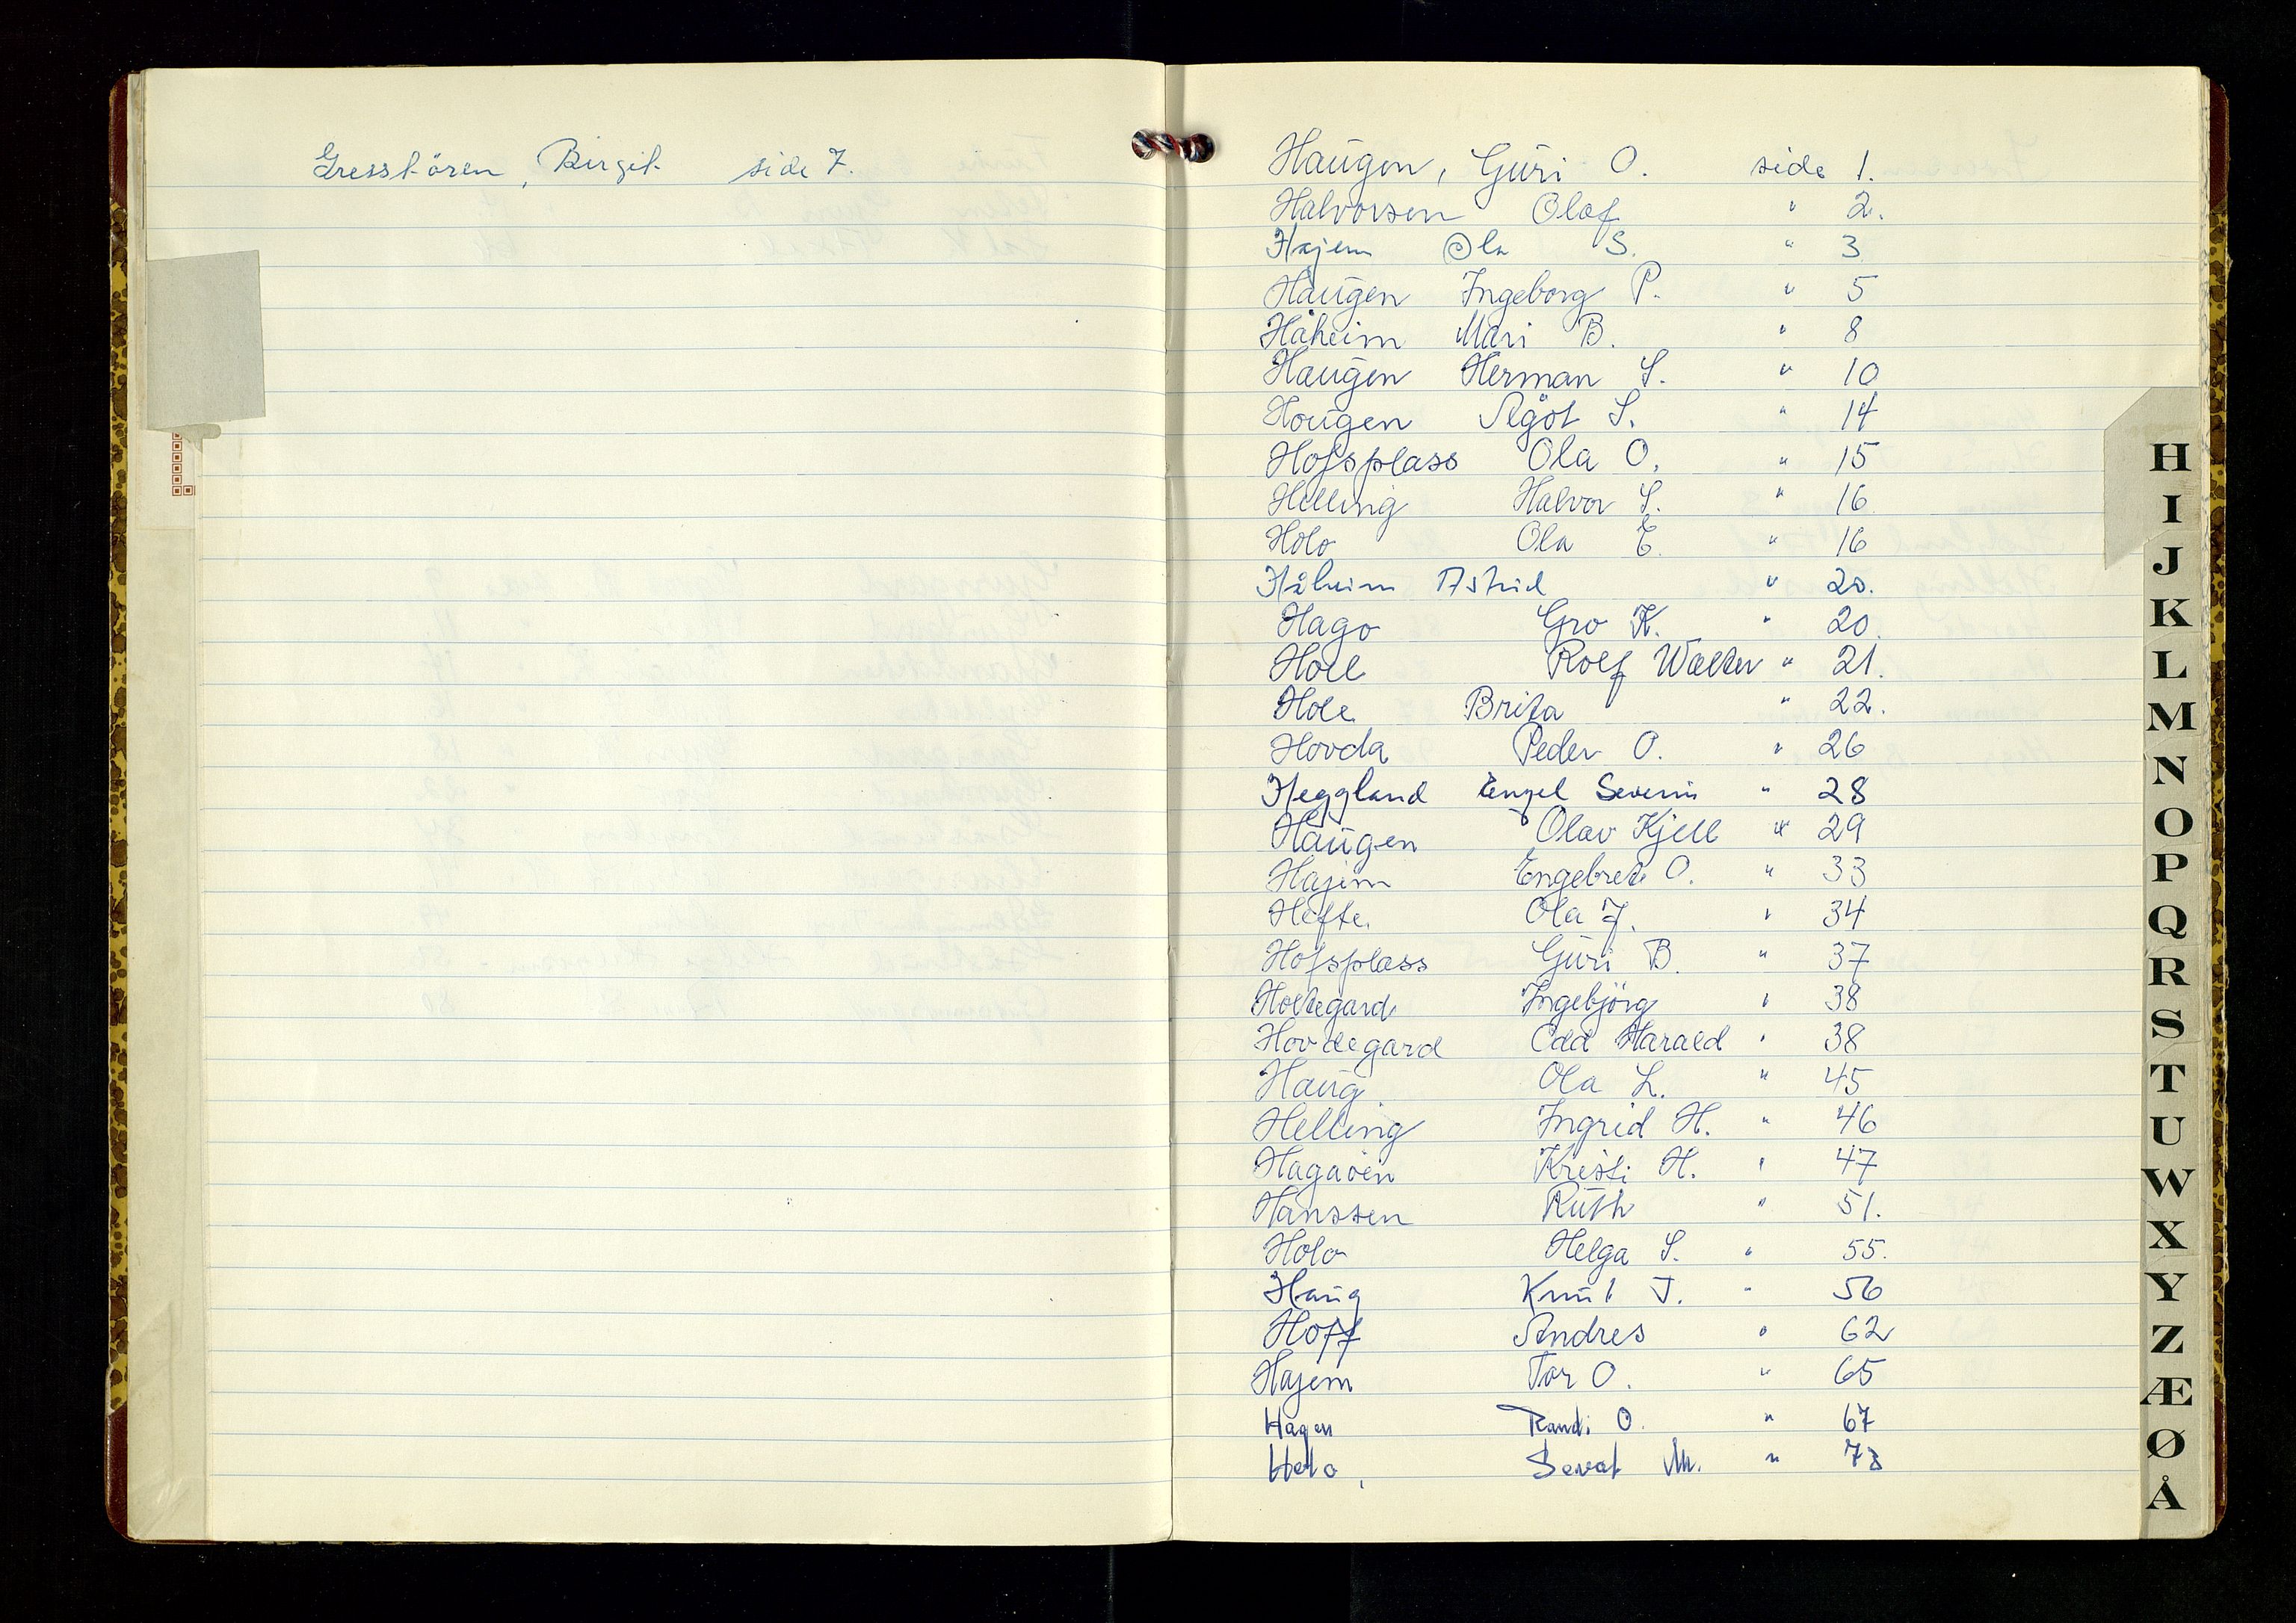 Gresstören, Birgit side 7.
Haugen, Guri O. side 1.
Halvorsen Olaf " 2.
Hajem Ola S. " 3
Haugen Ingeborg P. " 5
Håheim Mari B. " 8
Haugen Herman S. " 10
Hougen Ågot S. " 14
Hofsplass Ola O. " 15
Helling Halvor S. " 16
Holo Ola E. " 16
Håheim Astrid " 20.
Hago Gro K. " 20.
Holl Rolf Walter " 21.
Hole Brita " 22.
Hovda Peder O. " 26
Heggland Engel Severin " 28
Haugen Olav Kjell " 29
Hajem Engebret O. " 33
Hefte. Ola J. " 34
Hofsplass Guri B. " 37
Holtegard Ingebjörg " 38
Hovdegard Odd Harald " 38
Haug. Ola L. " 45
Helling Ingrid H. " 46
Hagaöen Kristi H. " 47
Hanssen Ruth " 51.
Holo Helga S. " 55.
Haug Knut T. " 56
Hoff Andres " 62
Hajem Tor O. " 65
Hagen Randi O. " 67
Holo, Sevat M. " 78
H
I
J
K
L
M
N
O
P
Q
R
S
T
U
W
X
Y
Z
Æ
Ø
Å